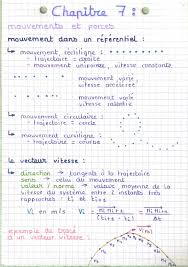 Chapitre 7 :
mouvements et forces
mouvement dans un référentiel :
mouvement rectiligne :
trajectoire = droite
mouvement uniforme, vitesse constante
mouvement varié,
vitesse accélérée
mouvement varié
vitesse ralentie
mouvement circulaire :
trajectoire = cercle
mouvement curviligne :
trajectoire = courbe
le vecteur vitesse :
direction → tangente à la trajectoire
sens → celui du mouvement
valeur / norme → valeur moyenne de la
vitesse du système entre 2 instants très
rapprochés : ti et ti+1
Vi en m/s
exemple du tracé
d'un vecteur vitesse :